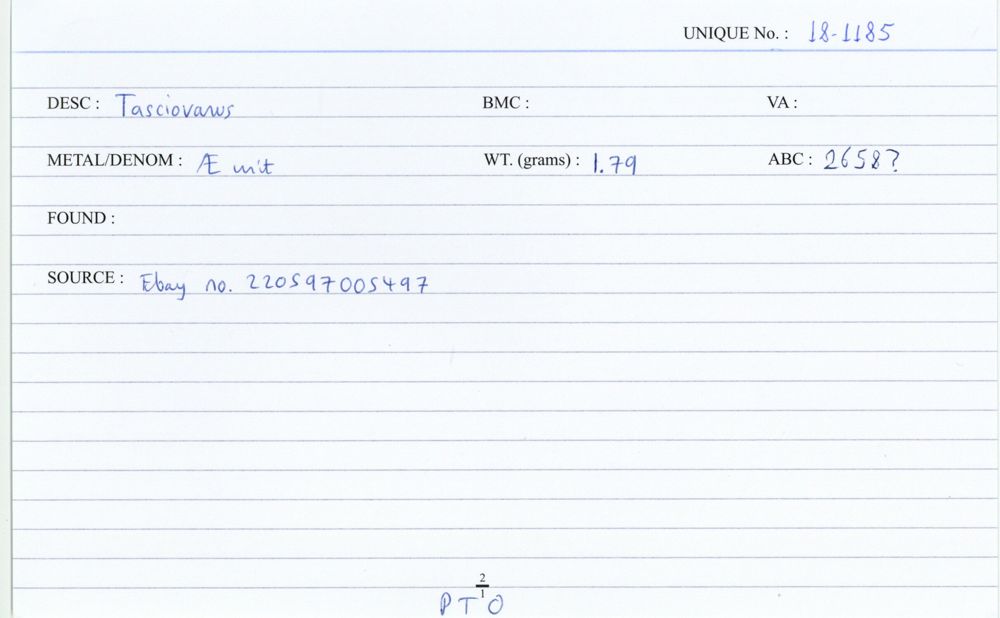 UNIQUE No. : 18-1185
DESC : Tasciovanus BMC : VA :
METAL/DENOM : Æ unit WT. (grams) : 1.79 ABC : 2658?
FOUND :
SOURCE : Ebay no. 220597005497
2
1
PTO